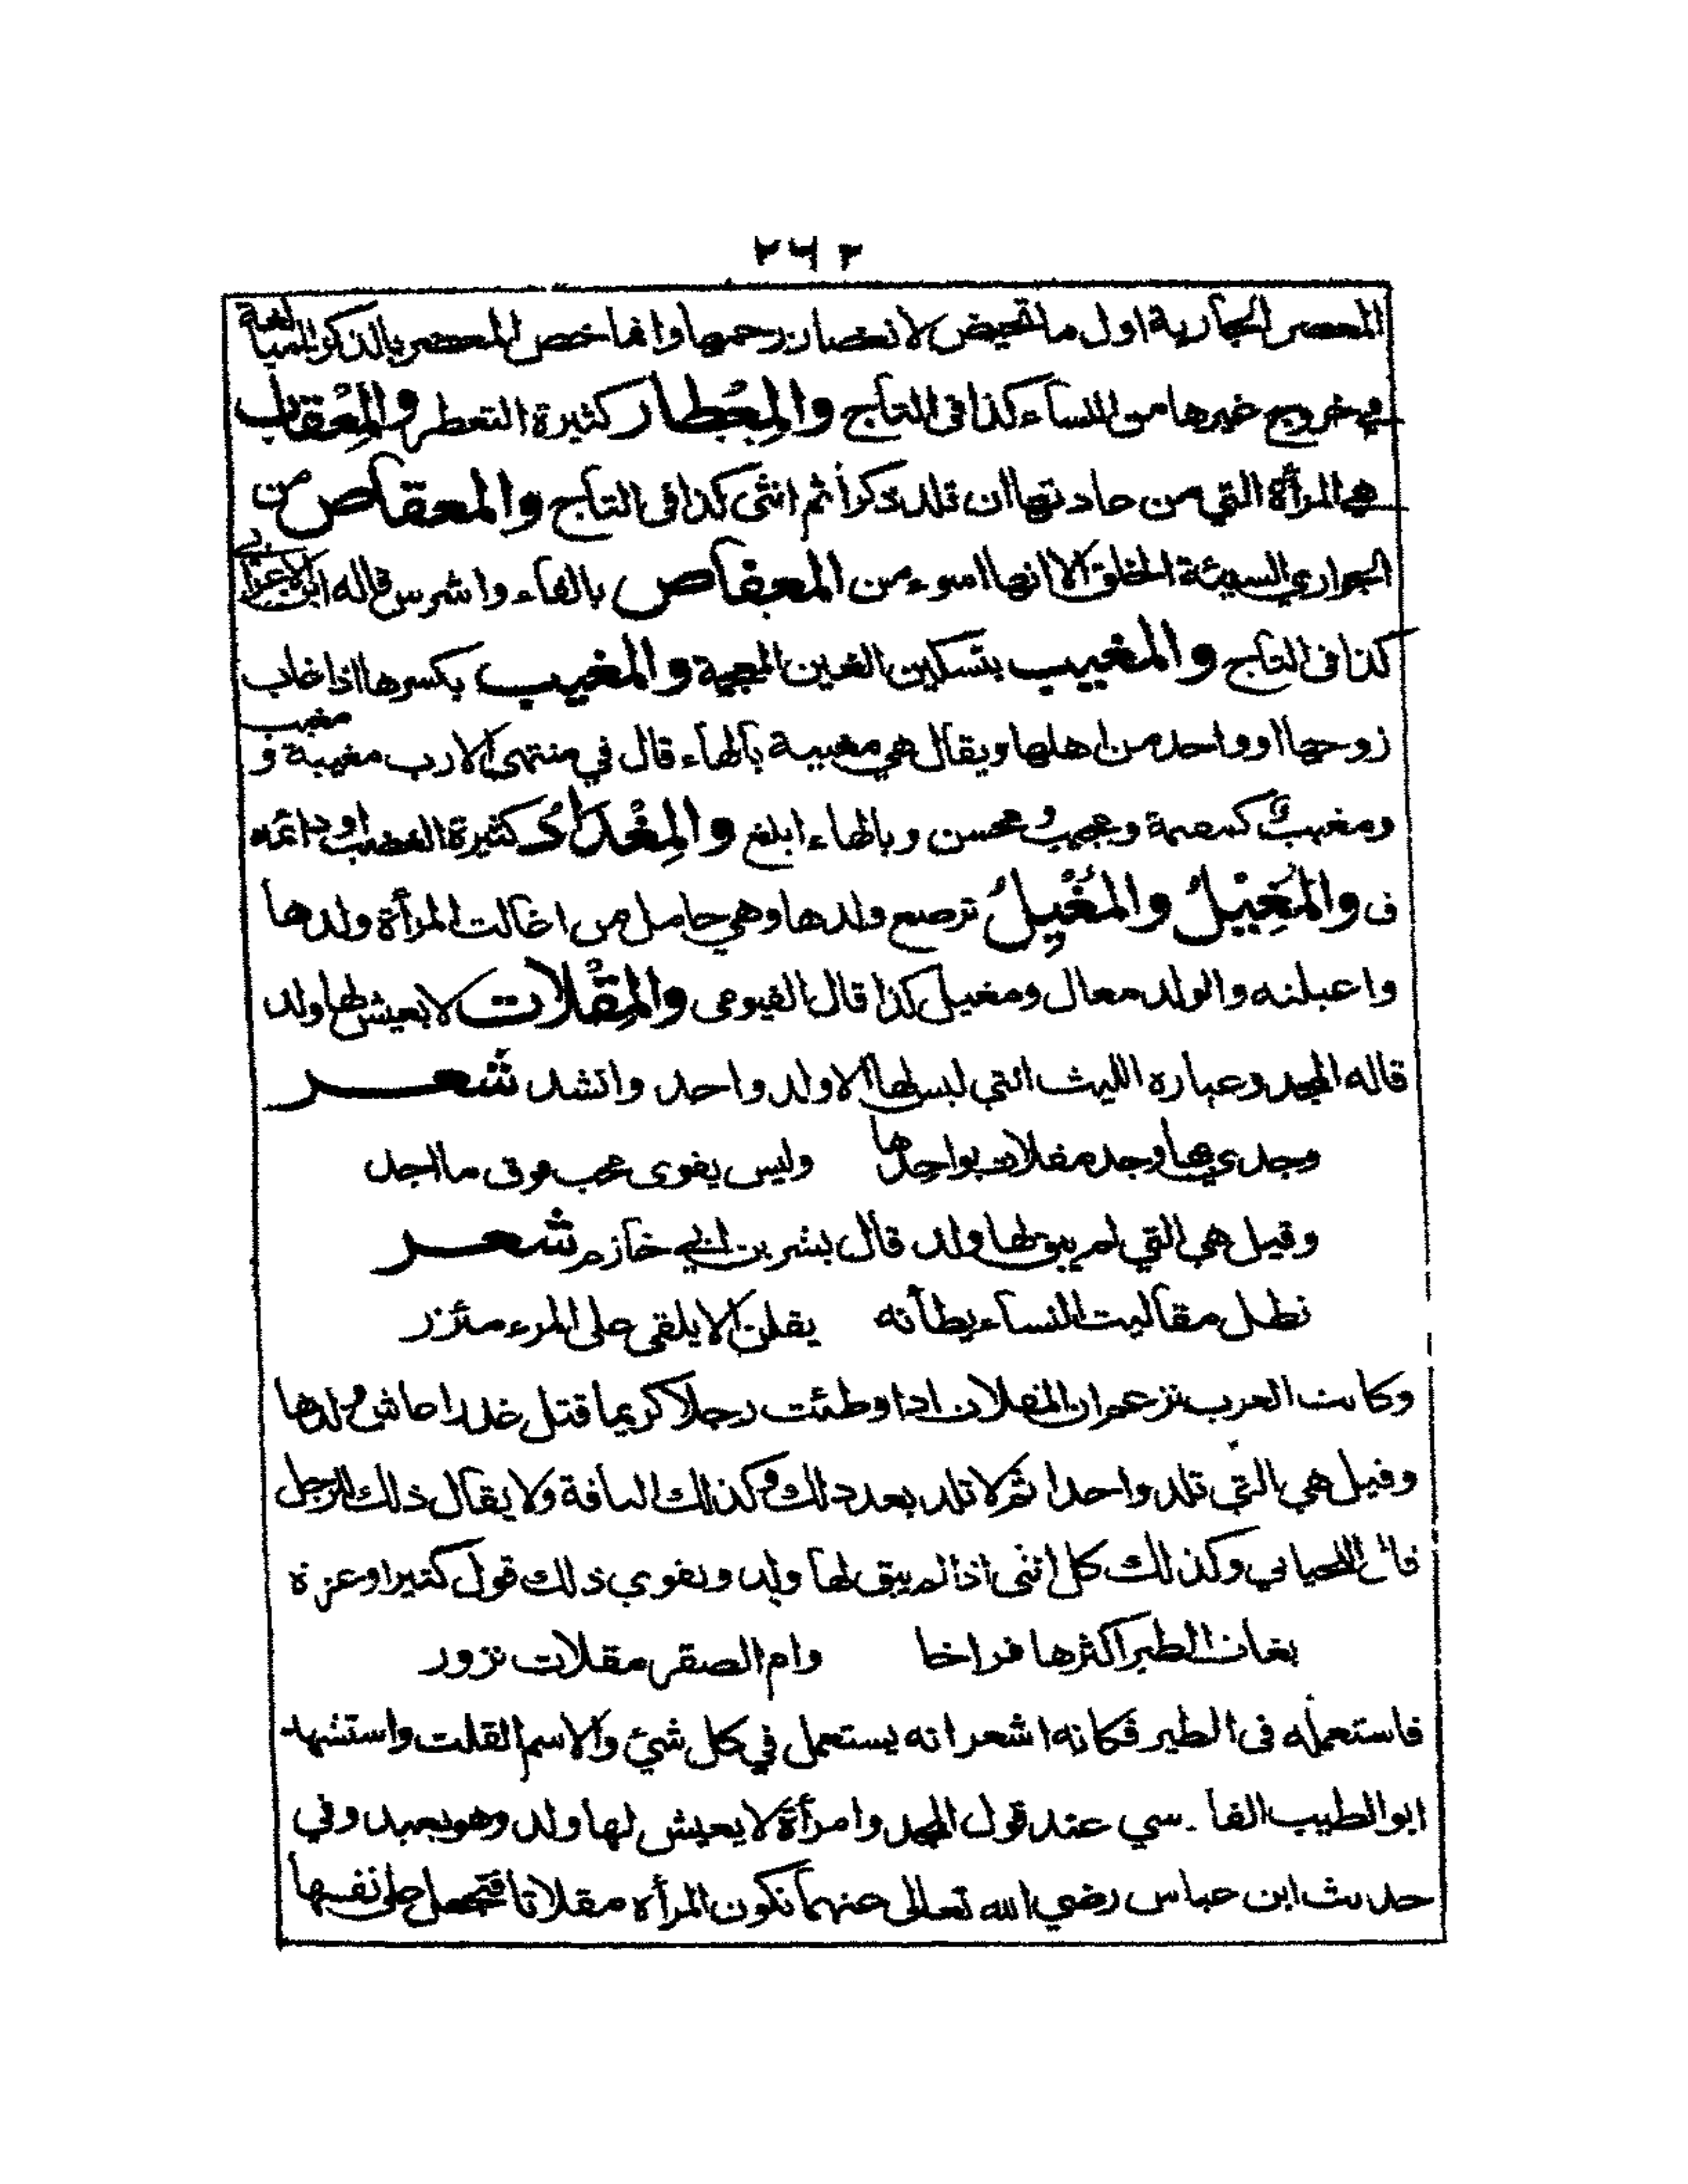 ٢٦٢
المعصر الجارية اول ما تحيض لانعصار رحمها وانما خص المعصر بالذكر للمبالغة
في خروج غيرها من النساء كذا في التاج والمِعْطار كثيرة التعطر والمِعْقاب
هي المرأة التي من عادتها ان تلد ذكراً ثم انثى كذا في التاج والمعقاص من
الجواري السيئة الخلق الا انها اسوء من المعفاص بالفاء واشرس قاله ابن الاعرابي
كذا في التاج والمغيب بتسكين الغين المعجمة والمغيب بكسرها اذا غاب
زوجها او واحد من اهلها ويقال هي مغيبة بالهاء قال في منتهى الارب مغيبة و مغيب
ومغيب كمعصمة وعجيب ومحسن وبالهاء ابلغ والمِغْدَادُ كثيرة الغضب او دائمه
ف والمُغِيْلُ والمُغْيِلُ ترضع ولدها وهي حامل من اغالت المرأة ولدها
واغيلته والولد مغال ومغيل كذا قال الفيومى والمِقْلات لا يعيش لها ولد
قاله المجد وعباره الليث التي ليس لها الا ولد واحد وانشد شعر
وجدي بها وجد مقلات بواحدها وليس يقوى محب فوق ما اجد
وقيل هي التي لم يبق لها ولد قال بشر بن ابي خازم شعر
تظل مقاليت النساء يطأنه يقلن الا يلقى على المرء مئزر
وكانت العرب تزعم ان المقلات اذا وطئت رجلا كريما قتل غدرا عاش ولدها
وقيل هي التي تلد واحدا ثم لا تلد بعد ذلك وكذلك الناقة ولا يقال ذلك للرجل
قال اللحياني وكذلك كل انثى اذا لم يبق لها ولد ويقوي ذلك قول كثير او عزة
بغاث الطير اكثرها فراخا وام الصقر مقلات نزور
فاستعمله فى الطير فكانه اشعر انه يستعمل في كل شئ والاسم القلت واستشهد
ابو الطيب الفاسي عند قول المجد وامرأة لا يعيش لها ولد وهو بعيد وفي
حديث ابن عباس رضي الله تعالى عنهما تكون المرأة مقلاتا فتجعل على نفسها